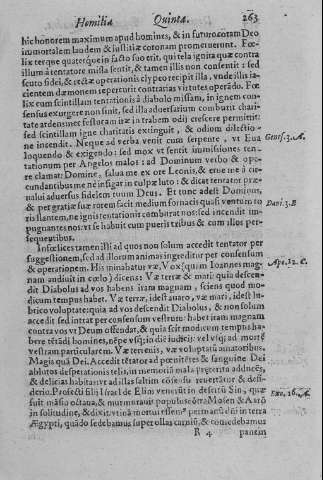 Homilia Quinta. 263
hic honorem maximum apud homines, & in futuro coram Deo
immortalem laudem & iustitiæ coronam promeruerunt. Fœ-
lix terque quaterque in facto suo erit, qui tela ignita quæ contra
illum à tentatore missa sentit, & tamen illis non consentit: sed
scuto fidei, & rectæ operationis clypeo recipit illa, unde illis ia-
cientem dæmonem reperturit contrarias virtutes operãdo. Fœ-
lix cum scintillam tentationis à diabolo missam, in ignem con-
sensus exurgere non sinit, sed illa aduersarium comburit chari-
tate ardentius
sed scintillam igne charitatis extinguit, & odium dilectio-
ne incendit. Neque ad verba venit cum serpente, vt Eua
loquendo & exigendo: sed mox vt sentit immissiones ten-
tationum per Angelos malos: ad Dominum verbo & ope-
re clamat: Domine, salua me ex ore Leonis, & erue me à cir-
cundantibus me
Genes. 3. A.
ualui aduersus fidelem tuum Deus. Et tunc adest Dominus,
& per gratiæ suæ rorem facit medium fornacis quasi ventum ro-
ris flantem, ne ignis tentationis comburat nos: sed incendit im-
pugnantes nos: vt se habuit cum pueris tribus & cum illos per-
sequentibus.
Dani. 3. B
Infœlices tamen illi ad quos non solum accedit tentator per
suggestionem, sed ad illorum animas ingreditur per consensum
& operationem. Illis minabatur væ, Vox (quam Ioannes mag-
nam audiuit in cœlo) dicens: Væ terræ & mari: quia descen-
dit Diabolus ad vos habens iram magnam, sciens quod mo-
dicum tempus habet. Væ terræ, idest auaro, væ mari, idest lu-
brico voluptate: quia ad vos descendit Diabolus, & non solum
accedit sed intrat per consensum vestrum: habet iram magnam
contra vos vt Deum offendat, & quia scit modicum tempus ha-
bere
vestram particularem. Væ terrenis, væ voluptatũ amatoribus.
Apoc. 12. C.
Magis quã Dei. Accedit tẽtator ad pœnitẽtes & sanguine Dei
ablutos desperationis telis, in memoriã mala preterita adducẽs,
& delicias habitas vt ad illas saltim cõsensu reuertãtur & desi-
derio. Profecti filij Israel de Elim venerũt in desertũ Sin, quæ
fuit mãsio octaua, & murmurauit populus cõtra Mosen & Aarõ
in solitudine, & dixit: vtinã mortui essemus per manũ dñi in terra
Ægypti, quãdo sedebamus super ollas carniũ, & comedebamus
Exo. 16. A.
R 4 panem